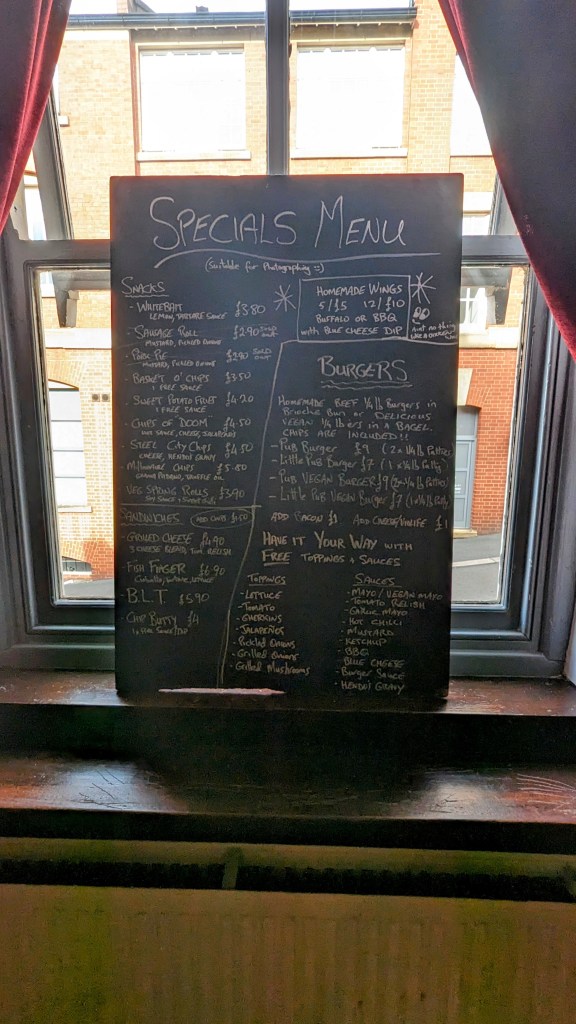 SPECIALS MENU
(Suitable for Photographing =)
SNACKS
- WHITEBAIT £3.80
LEMON, TARTARE SAUCE
- SAUSAGE ROLL £2.90 SOLD OUT
MUSTARD, PICKLED ONIONS
- PORK PIE £2.90 SOLD OUT
MUSTARD, PICKLED ONIONS
- BASKET O' CHIPS £3.50
1 FREE SAUCE
- SWEET POTATO FRIES £4.20
1 FREE SAUCE
- CHIPS OF DOOM £4.50
HOT SAUCE, CHEESE, JALAPEÑOS
- STEEL CITY CHIPS £4.50
CHEESE, HENDOS GRAVY
- MILLIONAIRE CHIPS
GRANA PADANO, TRUFFLE OIL
VEG SPRING ROLLS £3.90
SANDWICHES (ADD CHIPS £1.50)
- GRILLED CHEESE £6.90
3 CHEESE BLEND, TOM. RELISH
- FISH FINGER £6.90
TARTARE, LETTUCE
- B.L.T £5.90
- CHIP BUTTY £4
HOMEMADE WINGS
5/£5 12/£10
BUFFALO OR BBQ
with BLUE CHEESE DIP
Aint nothing
LIKE A CHICKEN
WING
BURGERS
HOMEMADE BEEF ¼ lb BURGERS in
Brioche Bun or DELICIOUS
VEGAN ¼ lbers in a BAGEL.
CHIPS ARE INCLUDED!!
- PUB BURGER £9 (2 x ¼lb Patties)
- Little Pub Burger £7 (1 x ¼lb Patty)
- PUB VEGAN BURGER £9 (2x ¼lb Patties)
- Little Pub VEGAN Burger £7 (1x¼lb Patty)
ADD BACON £1 ADD CHEESE/VIOLIFE £1
HAVE IT YOUR WAY WITH
FREE TOPPINGS + SAUCES
TOPPINGS
- LETTUCE
- TOMATO
- GHERKINS
- JALAPEÑOS
- Pickled Onions
- Grilled Onions
- Grilled Mushrooms
SAUCES
- MAYO / VEGAN MAYO
- TOMATO RELISH
- GARLIC MAYO
- HOT CHILLI
- MUSTARD
- KETCHUP
- BBQ
- BLUE CHEESE
- Burger SAUCE
- HENDO'S GRAVY